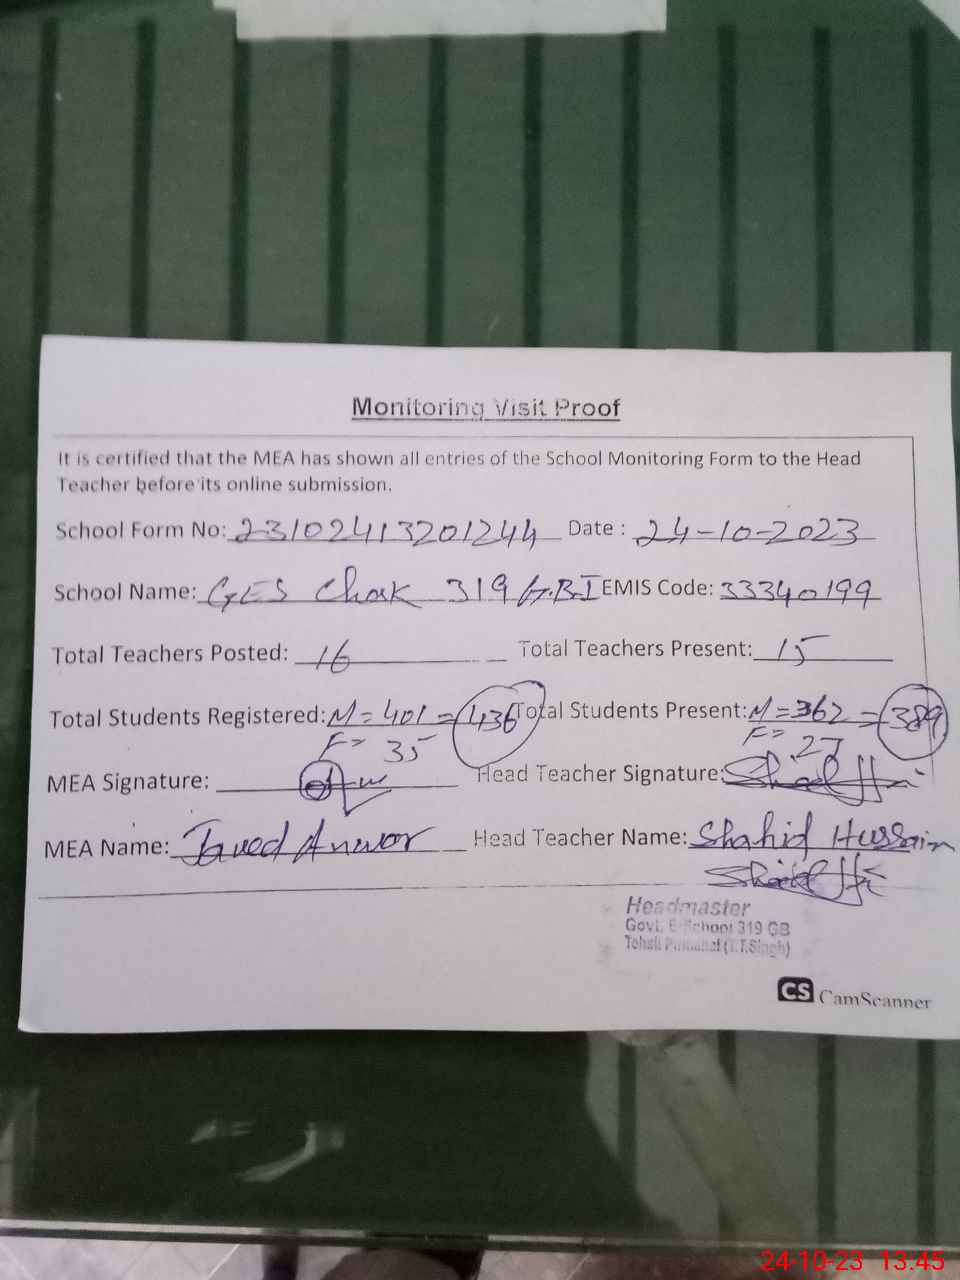 Monitoring Visit Proof
It is certified that the MEA has shown all entries of the School Monitoring Form to the Head
Teacher before its online submission.
School Form No: 23102413201244 Date : 24-10-2023
School Name: GES Chak 319 G.B.I EMIS Code: 33340199
Total Teachers Posted: 16 Total Teachers Present: 15
Total Students Registered: M = 401 = 436 Total Students Present: M = 362 = 389
F = 35 F = 27
MEA Signature: Head Teacher Signature:
MEA Name: Javed Anwar Head Teacher Name: Shahid Hussain
Headmaster
Govt. E-School 319 GB
Tehsil (T.T.Singh)
CS CamScanner
24-10-23 13.45